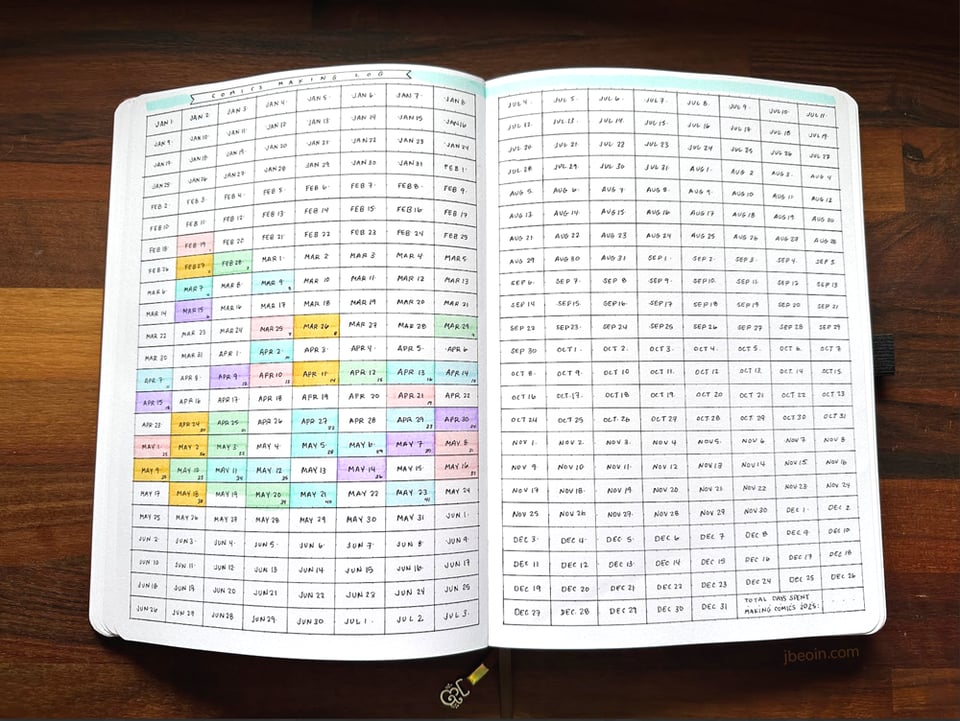 COMICS MAKING LOG
JAN 1 JAN 2 JAN 3 JAN 4 JAN 5 JAN 6 JAN 7 JAN 8
JAN 9 JAN 10 JAN 11 JAN 12 JAN 13 JAN 14 JAN 15 JAN 16
JAN 17 JAN 18 JAN 19 JAN 20 JAN 21 JAN 22 JAN 23 JAN 24
JAN 25 JAN 26 JAN 27 JAN 28 JAN 29 JAN 30 JAN 31 FEB 1
FEB 2 FEB 3 FEB 4 FEB 5 FEB 6 FEB 7 FEB 8 FEB 9
FEB 10 FEB 11 FEB 12 FEB 13 FEB 14 FEB 15 FEB 16 FEB 17
FEB 18 FEB 19 FEB 20 FEB 21 FEB 22 FEB 23 FEB 24 FEB 25
FEB 26 FEB 27 FEB 28 MAR 1 MAR 2 MAR 3 MAR 4 MAR 5
MAR 6 MAR 7 MAR 8 MAR 9 MAR 10 MAR 11 MAR 12 MAR 13
MAR 14 MAR 15 MAR 16 MAR 17 MAR 18 MAR 19 MAR 20 MAR 21
MAR 22 MAR 23 MAR 24 MAR 25 MAR 26 MAR 27 MAR 28 MAR 29
MAR 30 MAR 31 APR 1 APR 2 APR 3 APR 4 APR 5 APR 6
APR 7 APR 8 APR 9 APR 10 APR 11 APR 12 APR 13 APR 14
APR 15 APR 16 APR 17 APR 18 APR 19 APR 20 APR 21 APR 22
APR 23 APR 24 APR 25 APR 26 APR 27 APR 28 APR 29 APR 30
MAY 1 MAY 2 MAY 3 MAY 4 MAY 5 MAY 6 MAY 7 MAY 8
MAY 9 MAY 10 MAY 11 MAY 12 MAY 13 MAY 14 MAY 15 MAY 16
MAY 17 MAY 18 MAY 19 MAY 20 MAY 21 MAY 22 MAY 23 MAY 24
MAY 25 MAY 26 MAY 27 MAY 28 MAY 29 MAY 30 MAY 31 JUN 1
JUN 2 JUN 3 JUN 4 JUN 5 JUN 6 JUN 7 JUN 8 JUN 9
JUN 10 JUN 11 JUN 12 JUN 13 JUN 14 JUN 15 JUN 16 JUN 17
JUN 18 JUN 19 JUN 20 JUN 21 JUN 22 JUN 23 JUN 24 JUN 25
JUN 26 JUN 27 JUN 28 JUN 29 JUN 30 JUL 1 JUL 2 JUL 3
JUL 4 JUL 5 JUL 6 JUL 7 JUL 8 JUL 9 JUL 10 JUL 11
JUL 12 JUL 13 JUL 14 JUL 15 JUL 16 JUL 17 JUL 18 JUL 19
JUL 20 JUL 21 JUL 22 JUL 23 JUL 24 JUL 25 JUL 26 JUL 27
JUL 28 JUL 29 JUL 30 JUL 31 AUG 1 AUG 2 AUG 3 AUG 4
AUG 5 AUG 6 AUG 7 AUG 8 AUG 9 AUG 10 AUG 11 AUG 12
AUG 13 AUG 14 AUG 15 AUG 16 AUG 17 AUG 18 AUG 19 AUG 20
AUG 21 AUG 22 AUG 23 AUG 24 AUG 25 AUG 26 AUG 27 AUG 28
AUG 29 AUG 30 AUG 31 SEP 1 SEP 2 SEP 3 SEP 4 SEP 5
SEP 6 SEP 7 SEP 8 SEP 9 SEP 10 SEP 11 SEP 12 SEP 13
SEP 14 SEP 15 SEP 16 SEP 17 SEP 18 SEP 19 SEP 20 SEP 21
SEP 22 SEP 23 SEP 24 SEP 25 SEP 26 SEP 27 SEP 28 SEP 29
SEP 30 OCT 1 OCT 2 OCT 3 OCT 4 OCT 5 OCT 6 OCT 7
OCT 8 OCT 9 OCT 10 OCT 11 OCT 12 OCT 13 OCT 14 OCT 15
OCT 16 OCT 17 OCT 18 OCT 19 OCT 20 OCT 21 OCT 22 OCT 23
OCT 24 OCT 25 OCT 26 OCT 27 OCT 28 OCT 29 OCT 30 OCT 31
NOV 1 NOV 2 NOV 3 NOV 4 NOV 5 NOV 6 NOV 7 NOV 8
NOV 9 NOV 10 NOV 11 NOV 12 NOV 13 NOV 14 NOV 15 NOV 16
NOV 17 NOV 18 NOV 19 NOV 20 NOV 21 NOV 22 NOV 23 NOV 24
NOV 25 NOV 26 NOV 27 NOV 28 NOV 29 NOV 30 DEC 1 DEC 2
DEC 3 DEC 4 DEC 5 DEC 6 DEC 7 DEC 8 DEC 9 DEC 10
DEC 11 DEC 12 DEC 13 DEC 14 DEC 15 DEC 16 DEC 17 DEC 18
DEC 19 DEC 20 DEC 21 DEC 22 DEC 23 DEC 24 DEC 25 DEC 26
DEC 27 DEC 28 DEC 29 DEC 30 DEC 31 TOTAL DAYS SPENT
MAKING COMICS 2025:
jbeoin.com